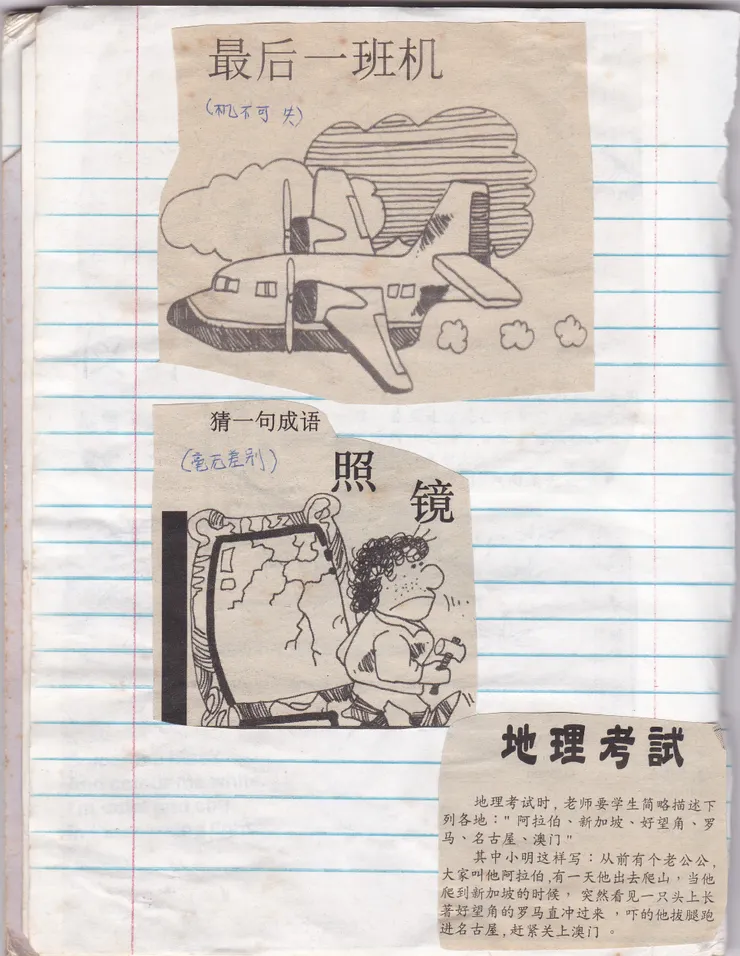 最后一班机
(机不可失)
猜一句成语
(毫无差别)
照
镜
地理考試
地理考试时,老师要学生简略描述下
列各地:"阿拉伯、新加坡、好望角、罗
马、名古屋、澳门"
其中小明这样写:从前有个老公公,
大家叫他阿拉伯,有一天他出去爬山,当他
爬到新加坡的时候,突然看见一只头上长
著好望角的罗马直冲过来,吓的他拔腿跑
进名古屋,赶紧关上澳门。